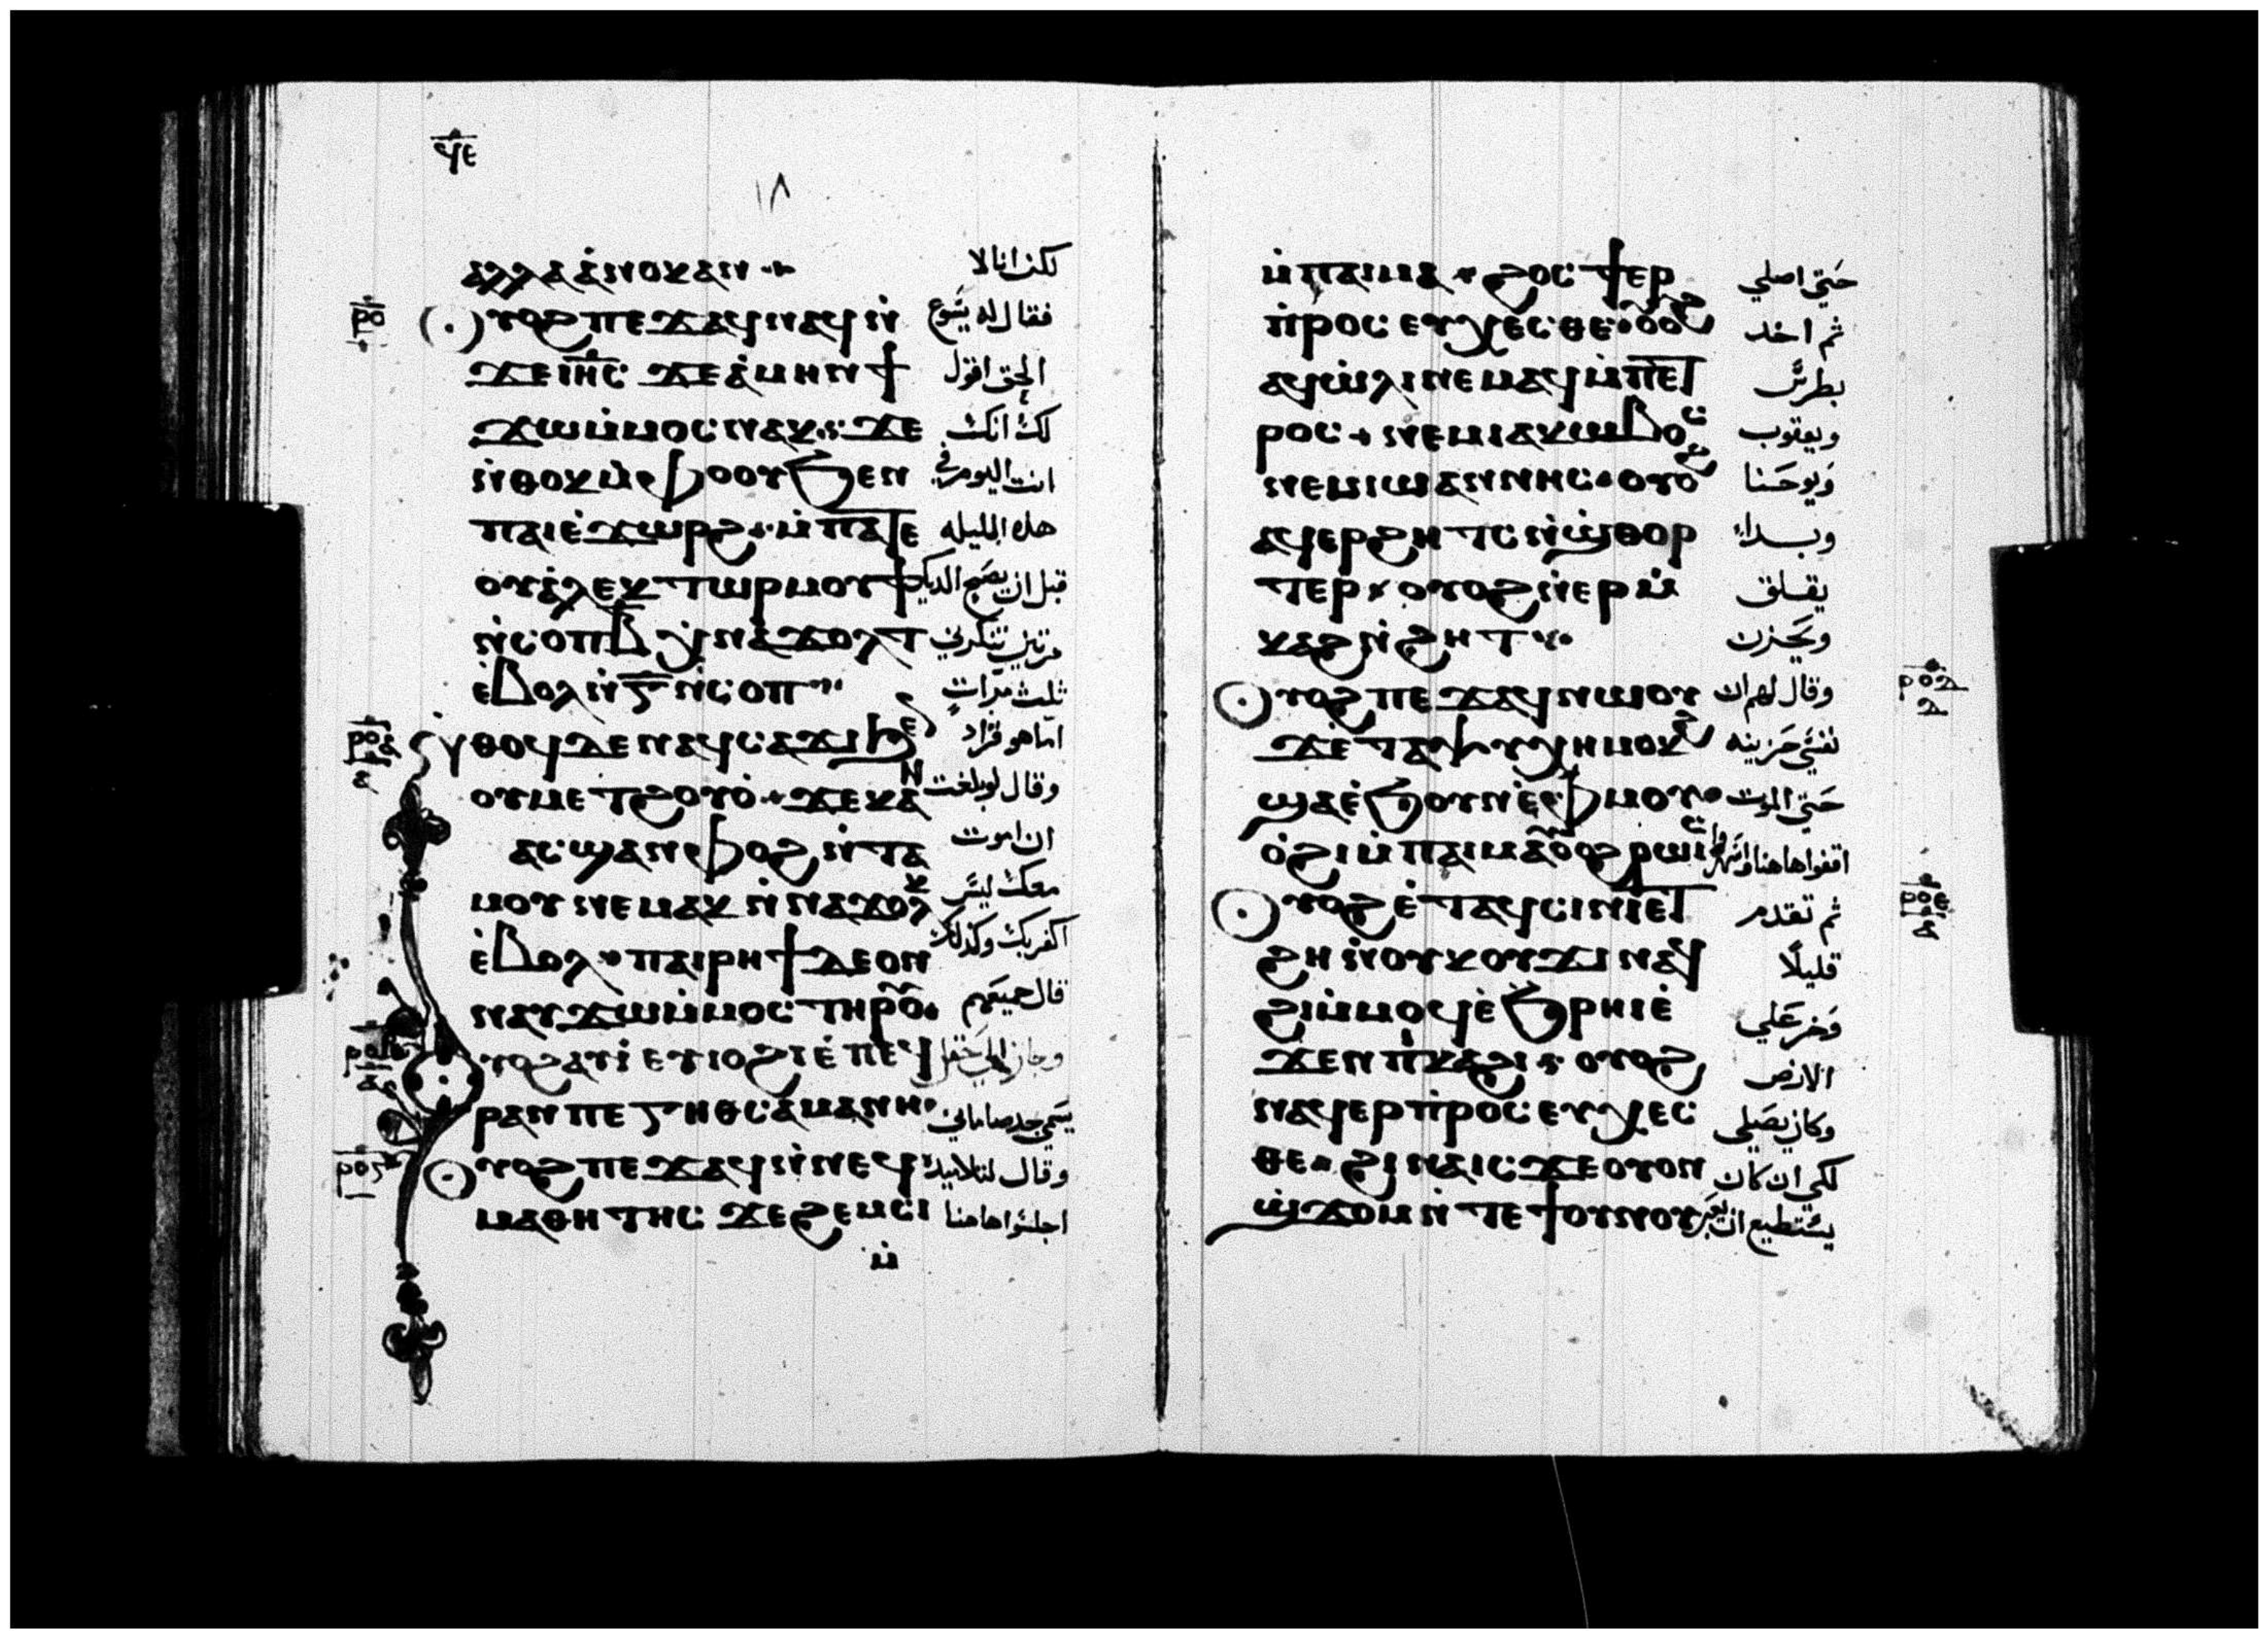 ϥⲉ
١٨
ⲁⲗⲗⲁ ⲁ̀ⲛⲟⲕ ⲁⲛ
لكن انا لا
ⲣⲟ
ⲩⲟϩ ⲡⲉϫⲁϥ ⲛⲁϥ ⲛ̀
فقال له يسوع
ϫⲉ ⲓⲏⲥ ϫⲉ ⲁ̀ⲙⲏⲛ ϯ
الحق اقول
ϫⲱ ⲙ̀ⲙⲟⲥ ⲛⲁⲕ ϫⲉ
لك انك
ⲛ̀ⲑⲟⲕ ⲙ̀ⲫⲟⲟⲩ ϧⲉⲛ
انت اليوم في
ⲡⲁⲓⲉ̀ϫⲱⲣϩ ⲙ̀ⲡⲁⲧⲉ
هذه الليله
ⲟⲩⲁ̀ⲗⲉⲕⲧⲱⲣ ⲙⲟⲩϯ
قبل ان يصيح الديك
ⲛ̀ⲥⲟⲡ ⲃ̄ ⲭⲛⲁϫⲟⲗⲧ
مرتين تنكرني
ⲉ̀ⲃⲟⲗ ⲛ̀ⲅ̄ ⲛ̀ⲥⲟⲡ
ثلث مرات
ⲣⲟⲁ
ⲁ
ⲛⲑⲟϥ ⲇⲉ ⲛⲁϥⲥⲁϫⲓ ϧⲉ
اما هو فزاد
ⲛ ⲟⲩⲙⲉⲧϩⲟⲩⲟ̀ ϫⲉ ⲕⲁⲛ
وقال لو بلغت
ⲁⲥϣⲁⲛⲫⲟϩ ⲛ̀ⲧⲁ
ان اموت
ⲙⲟⲩ ⲛⲉⲙⲁⲕ ⲛ̀ⲛⲁϫⲟⲗⲕ
معك ليس
ⲉ̀ⲃⲟⲗ ⲡⲁⲓⲣⲏϯ ⲇⲉ ⲟⲛ
اكفر بك وكذلك
ⲛⲁⲩϫⲱ ⲙ̀ⲙⲟⲥ ⲧⲏⲣⲟⲩ
قال جميعهم
ⲩⲟϩ ⲁⲩⲓ̀ ⲉⲩⲓⲟϩⲓ ⲉ̀ⲡⲉϥ
وجاز الي حقل
ⲣⲁⲛ ⲡⲉ ⲅⲏⲑⲥⲁⲙⲁⲛⲏ
يسمي جدصاماني
ⲣⲟⲅ
ⲩⲟϩ ⲡⲉϫⲁϥ ⲛ̀ⲛⲉϥ
وقال لتلاميذه
ⲙⲁⲑⲏⲧⲏⲥ ϫⲉ ϩⲉⲙⲥⲓ
اجلسوا هاهنا
ⲙ̀
ⲙ̀ⲡⲁⲓⲙⲁ ϩⲟⲥ ϯⲉⲣ
حتي اصلي
ⲡ̀ⲣⲟⲥⲉⲩⲭⲉⲥⲑⲉ ⲟⲩⲟϩ
ثم اخذ
ⲁϥⲱ̀ⲗⲓ ⲛⲉⲙⲁϥ ⲙ̀ⲡⲉⲧ
بطرس
ⲣⲟⲥ ⲛⲉⲙ ⲓⲁⲕⲱⲃⲟⲥ
ويعقوب
ⲛⲉⲙ ⲓⲱⲁⲛⲛⲏⲥ ⲟⲩⲟϩ
ويوحنا
ⲁϥⲉⲣϩⲏⲧⲥ ⲛ̀ϣ̀ⲑⲟⲣ
وبداء
ⲧⲉⲣ ⲟⲩⲟϩ ⲛ̀ⲉⲣⲙ̀
يقلق
ⲕⲁϩ ⲛ̀ϩⲏⲧ
ويحزن
ⲣⲟⲇ
ⲇ
ⲩⲟϩ ⲡⲉϫⲁϥ ⲛⲱⲟⲩ
وقال لهم ان
ϫⲉ ⲧⲁⲯⲩⲭⲏ ⲙⲟⲕϩ
نفسي حزينه
ϣⲁ ⲉ̀ϧⲟⲩⲛ ⲉ̀ⲫⲙⲟⲩ
حتي الموت
ⲟ̀ϩⲓ ⲙ̀ⲡⲁⲓⲙⲁ ⲟⲩⲟϩ ⲣⲱⲓⲥ
اقفوا هاهنا واسهروا
ⲣⲟⲉ
ⲁ
ⲩⲟϩ ⲉ̀ⲧⲁϥⲥⲓⲛⲓ ⲉⲧ
ثم تقدم
ϩⲏ ⲛ̀ⲟⲩⲕⲟⲩϫⲓ ⲛⲁϥ
قليلًا
ϩⲓ ⲙ̀ⲙⲟϥ ⲉ̀ϧⲣⲏⲓ ⲉ̀
وخر علي
ϫⲉⲛ ⲡ̀ⲕⲁϩⲓ ⲟⲩⲟϩ
الارض
ⲛⲁϥⲉⲣⲡ̀ⲣⲟⲥⲉⲩⲭⲉⲥ
وكان يصلي
ⲑⲉ ϩⲓⲛⲁⲓⲥϫⲉ ⲟⲩⲟⲛ
لكي ان كان
ϣ̀ϫⲟⲙ ⲛ̀ⲧⲉ ϯⲟⲩⲛⲟⲩ
يستطيع ان تعبر